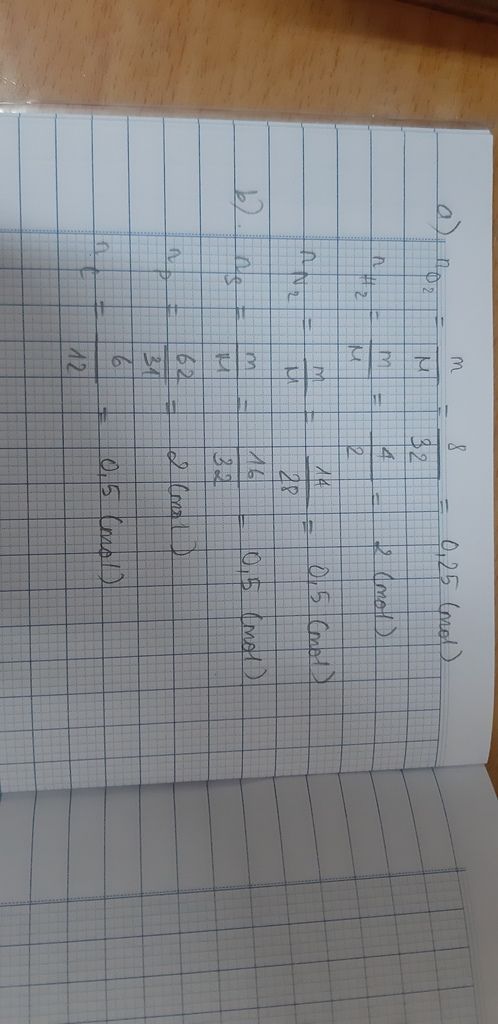 a) nO₂ = m/M = 8/32 = 0,25 (mol)
nH₂ = m/M = 4/2 = 2 (mol)
nN₂ = m/M = 14/28 = 0,5 (mol)
b). nS = m/M = 16/32 = 0,5 (mol)
nP = 62/31 = 2 (mol)
nC = 6/12 = 0,5 (mol)